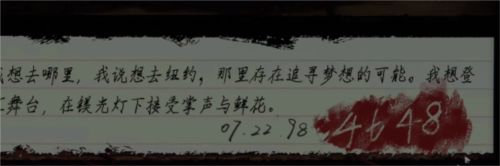 我想去哪里，我说想去纽约，那里存在追寻梦想的可能。我想登
舞台，在镁光灯下接受掌声与鲜花。
07.22.98 4648